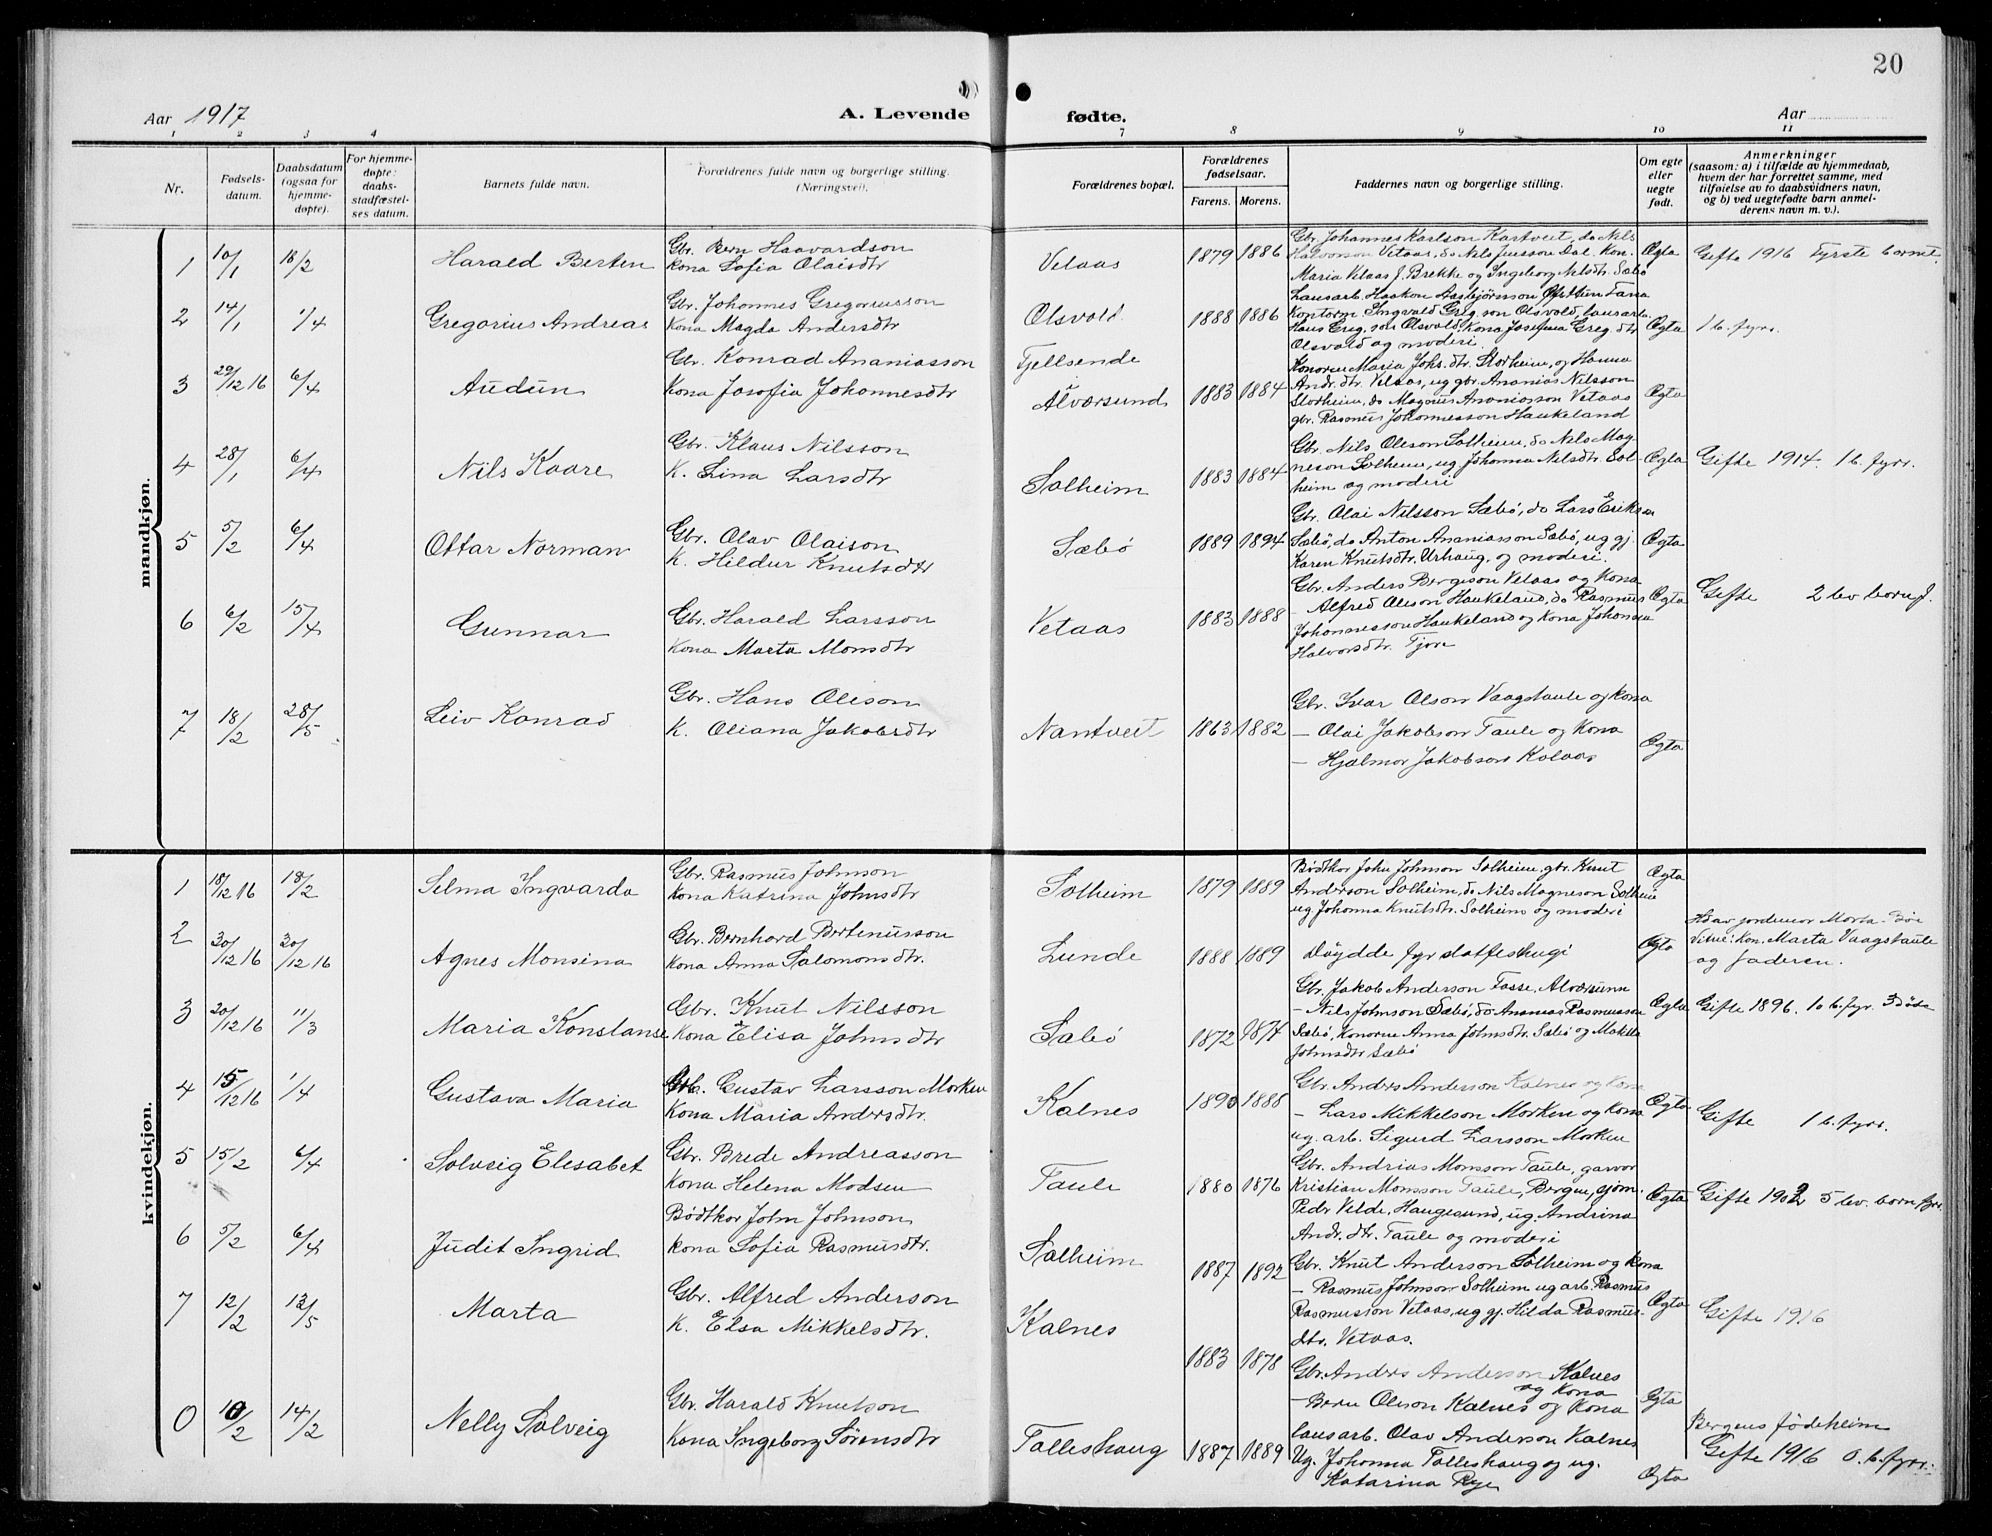 20
Aar 1917
A. Levende fødte.
Aar
1 2 3 4 7 8 9 10 11
Nr.
Fødsels-
datum.
Daabsdatum
(ogsaa for
hjemme-
døpte).
For hjemme-
døpte:
daabs-
stadfæstel-
ses datum.
Barnets fulde navn.
Forældrenes fulde navn og borgerlige stilling.
(Næringsvei).
Forældrenes bopæl.
Forældrenes
fødselsaar.
Farens. Morens.
Faddernes navn og borgerlige stilling.
Om egte
eller
uegte
født.
Anmerkninger
(saasom: a) i tilfælde av hjemmedaab,
hvem der har forrettet samme, med
tilføielse av to daabsvidners navn,
og b) ved uegtefødte barn anmel-
derens navn m. v.).
mandkjøn.
1 10/1 18/2 Harald Berten
Gbr. Bern Haavardson
Kona Sofia Olaisdtr
Vetaas 1879 1886
Gbr. Johannes Karlson Kartveit, do Nils
Halvorson Vetaas, do Nils Jensson Dal. Kon.
Maria Vetaas J. Brekke og Ingeborg Nilsdtr. Sæbø
Ægta Gifte 1916 Fyrste bornet.
2 14/1 1/4 Gregorius Andreas
Gbr. Johannes Gregoriusson
Kona Magda Andersdtr
Olsvold 1888 1886
Lausarb. Haakon Aasbjørnsson Fana
Kontorm. Ingvald Greg.son Olsvold, lausarb.
Hans Greg.son Olsvold, Kona Josefina Greg.dtr
Olsvold og moderi.
Ægta 1 b. fyrr.
3 29/12 16 6/4 Audun
Gbr. Konrad Ananiasson
Kona Josofia Johannesdtr
Fjellsende
Alværsund 1883 1884
Konorne Maria Johs.dtr. Storheim, og Hanna
Andr.dtr. Vetaas, ug gbr. Ananias Nilsson
Storheim, do Magnus Ananiasson Vetaas
gbr. Rasmus Johannesson Haukeland
Ægta
4 28/1 6/4 Nils Kaare
Gbr. Klaus Nilsson
K. Lina Larsdtr
Solheim 1883 1884
Gbr. Nils Oleson Solheim, do Nils Mag-
neson Solheim, ug Johanna Nilsdtr. Sol-
heim og moderi
Ægta Gifte 1914. 1 b. fyrr.
5 5/2 6/4 Ottar Norman
Gbr. Olav Olaison
K. Hildur Knutsdtr
Sæbø 1889 1894
Gbr. Olai Nilsson Sæbø, do Lars Erikson
Sæbø, do Anton Ananiasson Sæbø, ug gj.
Karen Knutsdtr. Urhaug, og moderi.
Ægta
6 6/2 15/4 Gunnar
Gbr. Harald Larsson
Kona Marta Monsdtr
Vetaas 1883 1888
Gbr. Anders Bergeson Vetaas og Kona
- Alfred Oleson Haukeland, do Rasmus
Johannesson Haukeland og Kona Johanna
Halvorsdtr. Fjon
Ægta Gifte 2 lev born f.
7 18/2 28/5 Leiv Konrad
Gbr. Hans Oleson
K. Oliana Jakobsdtr
Nantveit 1863 1882
Gbr. Ivar Olson Vaagstaule og Kona
- Olai Jakobson Taule og Kona
- Hjalmar Jakobson Kolaas
Ægta
kvindekjøn.
1 18/12 16 18/2 Selma Ingvarda
Gbr. Rasmus Johnson
Kona Katrina Johnsdtr
Solheim 1879 1889
Bødtkor John Johnson Solheim, gbr. Knut
Anderson Solheim, do Nils Magneson Solheim
ug. Johanna Knutsdtr. Solheim og moderi
Ægta
2 30/12 16 30/12 16 Agnes Monsina
Gbr. Bernhard Bertenusson
Kona Anna Salomonsdtr.
Lunde 1888 1889
Døydde fyr statfestugi
Ægta
Hd av jordemor Marta Bøe
Vitne: Kon. Marta Vaagstaule
og faderen.
3 20/12 16 11/3 Maria Konstanse
Gbr. Knut Nilsson
Kona Elisa Johnsdtr
Sæbø 1872 1874
Gbr. Jakob Anderson Fosse, Alværsund
- Nils Johnson Sæbø, do Ananias Rasmusson
Sæbø, Konorne Anna Johnsdtr. Sæbø og Makela
Johnsdtr Sæbø
Ægta Gifte 1896. 10 b. fyr. 3 døde
4 15/12 16 1/4 Gustava Maria
Gbr. Gustav Larsson Morken
Kona Maria Andersdtr.
Kalnes 1890 1888
Gbr. Anders Anderson Kalnes og Kona
- Lars Mikkelson Morken og Kona
ug. arb. Sigurd Larsson Morken
Ægta Gifte 1 b. fyrr.
5 15/2 6/4 Solveig Elisabet
Gbr. Brede Andreasson
Kona Helena Madsen
Taule 1880 1876
Gbr. Andrias Monsson Taule, garvar
Kristian Monsson Taule, Bergen, sjøm.
Pedr Velde, Haugesund, ug. Andrina
Andr.dtr. Taule og moderi
Ægta Gifte 1902 5 lev. born fyrr.
6 5/2 6/4 Judit Ingrid
Bødtkor John Johnson
Kona Sofia Rasmusdtr.
Solheim 1887 1892
Gbr. Knut Anderson Solheim og Kona
- Rasmus Johnson Solheim ug arb. Rasmus
Rasmusson Vetaas, ug gj. Hilda Rasmus-
dtr. Vetaas.
Ægta
7 12/2 13/5 Marta
Gbr. Alfred Anderson
K. Elsa Mikkelsdtr.
Kalnes 1883 1878
Gbr. Anders Anderson Kalnes
og Kona
- Bern Olsson Kalnes og Kona
Lausarb. Olav Anderson Kalnes
Ægta Gifte 1916
0 10/2 14/2 Nelly Solveig
Gbr. Harald Knutson
Kona Ingeborg Sørensdtr
Tolleshaug 1887 1889
Ug. Johanna Tolleshaug og ug.
Katarina Rye
Ægta
Bergens fødeheim
Gifte 1916 0. b. fyrr.